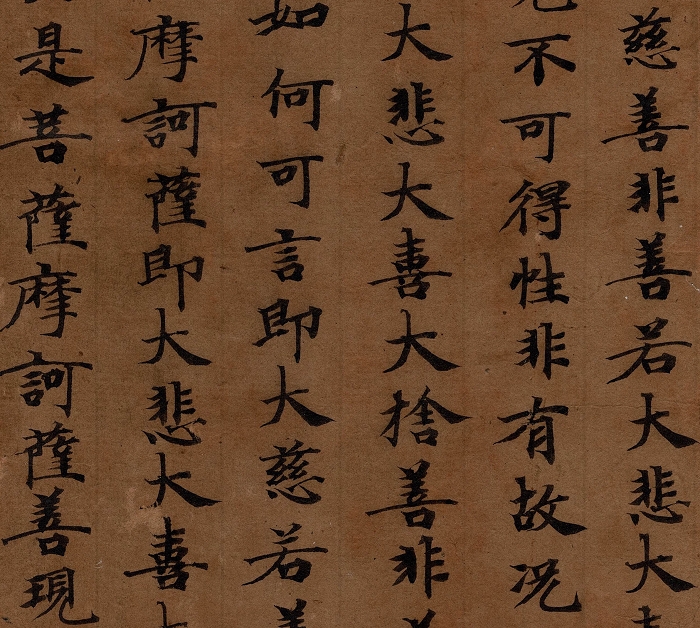 慈善非善若大悲大
不可得性非有故况
大悲大喜大捨善非
如何可言即大慈若善
摩訶薩即大悲大喜
是菩薩摩訶薩善現